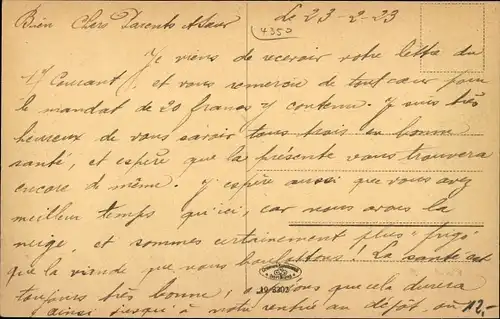 Bien Chers Parents & Soeur le 23-2-23
4350
Je viens de recevoir votre lettre du
17 Courant, et vous remercie de tout cœur pour
le mandat de 20 francs y contenu. Je suis très
heureux de vous savoir tous trois en bonne
santé, et espère que la présente vous trouvera
encore de même. J'espère aussi que vous avez
meilleur temps qu'ici, car nous avons la
neige, et sommes certainement plus "frigo"
que la viande que nous boulottons! La santé est
toujours très bonne; que cela durera
ainsi jusqu'à notre rentrée au dépôt, où
12,-